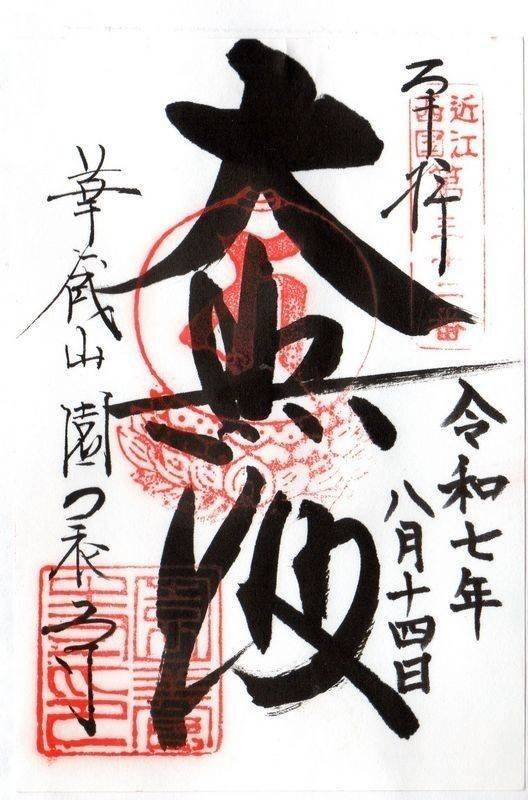 奉拝
近江
西国第三十二番
令和七年
八月十四日
大悲殿
華蔵山園養寺